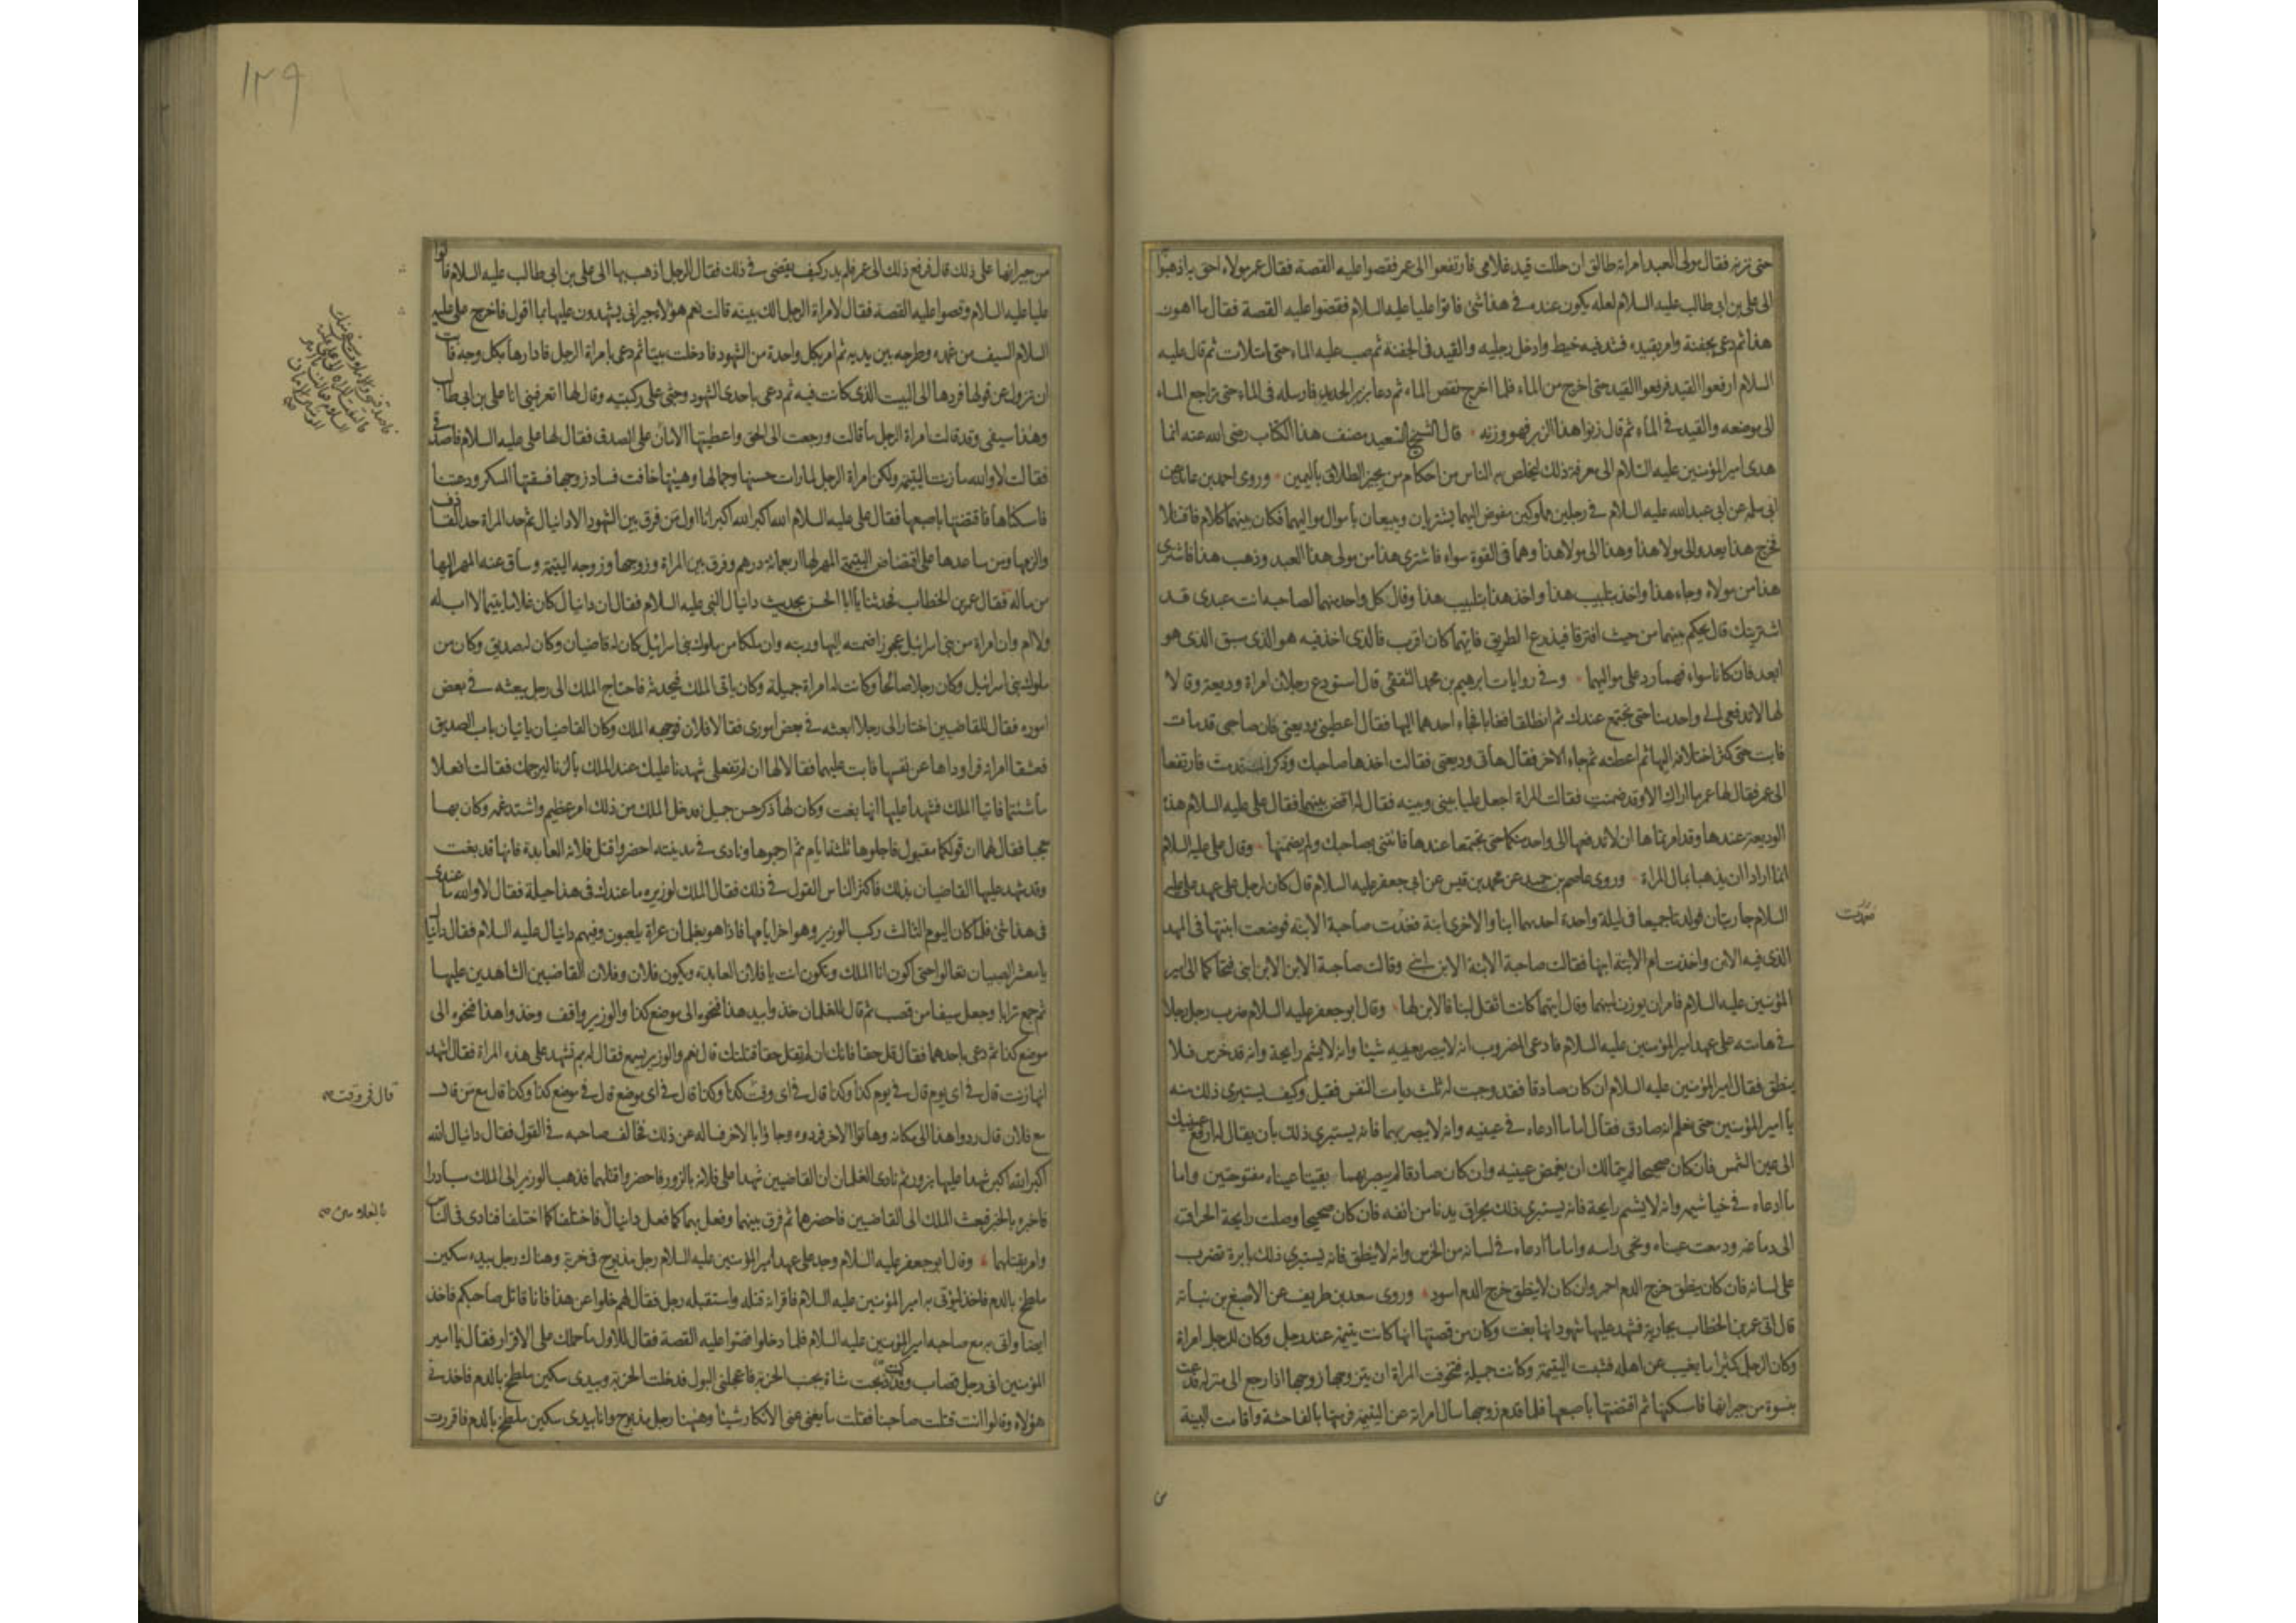 حتى تزنه فقال مولى العبد امراته طالق ان حللت قيد غلامى فارتفعوا الى عمر فقصوا عليه القصة فقال عمر مولاه احق به اذهبوا
الى على بن ابى طالب عليه السلام لعله يكون عنده فى هذا شئ فاتوا عليا عليه السلام فقصوا عليه القصة فقال ما اهون
هذا ثم دعى بجفنة وامر بقيده فشد فيه خيط وادخل رجليه والقيد فى الجفنة ثم صب عليه الماء حتى امتلات ثم قال عليه
السلام ارفعوا القيد فرفعوا القيد حتى اخرج من الماء فلما اخرج نقص الماء ثم دعا بزبر الحديد فارسله فى الماء حتى تراجع الماء
الى موضعه والقيد فى الماء ثم قال زنوا هذا الزبر فهو وزنه قال الشيخ السعيد مصنف هذا الكتاب رضى الله عنه انما
هدى امير المؤمنين عليه السلام الى معرفة ذلك ليخلص به الناس من احكام من يجيز الطلاق باليمين وروى احمد بن عائذ عن
ابى سلمه عن ابى عبد الله عليه السلام فى رجلين مملوكين مفوض اليهما يشتريان ويبيعان باموال مواليهما فكان بينهما كلام فاقتتلا
فخرج هذا يعدو الى مولا هذا وهذا الى مولا هذا وهما فى القوة سواء فاشترى هذا من مولى هذا العبد وذهب هذا فاشترى
هذا من مولاه وجاء هذا واخذ بتلبيب هذا واخذ هذا بتلبيب هذا وقال كل واحد منهما لصاحبه انت عبدى قد
اشتريتك قال يحكم بينهما من حيث افترقا فيذرع الطريق فايهما كان اقرب فالذى اخذ فيه هو الذى سبق الذى هو
ابعد فان كانا سواء فهما رد على مواليهما وفى روايات ابرهيم بن محمد الثقفى قال استودع رجلان امراة وديعة وقالا
لها لا تدفعى الى واحد منا حتى نجتمع عندك ثم انطلقا فغابا فجاء احدهما اليها فقال اعطينى وديعتى فان صاحبى قد مات
فابت حتى كثر اختلافه اليها ثم اعطته ثم جاء الآخر فقال هاتى وديعتى فقالت اخذها صاحبك وذكر انك قد مت فارتفعا
الى عمر فقال لها عمر ما اراك الا وقد ضمنت فقالت المراة اجعل عليا بينى وبينه فقال له اقض بينهما فقال على عليه السلام هذه
الوديعة عندها وقد امرتماها ان لا تدفعها الى واحد منكما حتى تجتمعا عندها فائتنى بصاحبك ولم يضمنها وقال على عليه السلام
انما ارادا ان يذهبا بمال المراة وروى عاصم بن حميد عن محمد بن قيس عن ابى جعفر عليه السلام قال كان لرجل على عهد على عليه
السلام جاريتان فولدتا جميعا فى ليلة واحدة احديهما ابنا والاخرى ابنة فغدت صاحبة الابنة فوضعت ابنتها فى المهد
الذى فيه الابن واخذت ام الابنة ابنها فقالت صاحبة الابنة الابن ابنى وقالت صاحبة الابن الابن ابنى فتحاكما الى امير
المؤمنين عليه السلام فامر ان يوزن لبنهما وقال ايتهما كانت اثقل لبنا فالابن لها وقال ابو جعفر عليه السلام ضرب رجل رجلا
فى هامته على عهد امير المؤمنين عليه السلام فادعى المضروب انه لا يبصر بعينيه شيئا وانه لا يشم رايحة وانه قد خرس فلا
ينطق فقال امير المؤمنين عليه السلام ان كان صادقا فقد وجبت له ثلث ديات النفس فقيل وكيف يستبرى ذلك منه
يا امير المؤمنين حتى نعلم انه صادق فقال اما ما ادعاه فى عينيه وانه لا يبصر بهما فانه يستبرى ذلك بان يقال له ارفع عينيك
الى عين الشمس فان كان صحيحا لم يتمالك ان يغمض عينيه وان كان صادقا لم يبصر بهما بقيتا عيناه مفتوحتين واما
ما ادعاه فى خياشيمه وانه لا يشم رايحة فانه يستبرى ذلك بحراق يدنا من انفه فان كان صحيحا وصلت رايحة الحراق
الى دماغه ودمعت عيناه ونحى راسه واما ما ادعاه فى لسانه من الخرس وانه لا ينطق فانه يستبرى ذلك بابرة تضرب
على لسانه فان كان ينطق خرج الدم احمر وان كان لا ينطق خرج الدم اسود وروى سعد بن طريف عن الاصبغ بن نباتة
قال اتى عمر بن الخطاب بجارية فشهد عليها شهود انها بغت وكان من قصتها انها كانت يتيمة عند رجل وكان للرجل امراة
وكان الرجل كثيرا ما يغيب عن اهله فشبت اليتيمة وكانت جميلة فتخوفت المراة ان يتزوجها زوجها اذا رجع الى منزله فدعت
بنسوة من جيرانها فامسكنها ثم افتضتها باصبعها فلما قدم زوجها سال امراته عن اليتيمة فرمتها بالفاحشة واقامت البينة
١٢٩
من جيرانها على ذلك قال فرفع ذلك الى عمر فلم يدر كيف يقضى فى ذلك فقال للرجل اذهب بها الى على بن ابى طالب عليه السلام فاتوا
عليا عليه السلام وقصوا عليه القصة فقال لامراة الرجل الك بينة قالت نعم هؤلاء جيرانى يشهدون عليها بما اقول فاخرج على عليه
السلام السيف من غمده وطرحه بين يديه ثم امر بكل واحدة من الشهود فادخلت بيتا ثم دعى بامراة الرجل فادارها بكل وجه فابت
ان تزول عن قولها فردها الى البيت الذى كانت فيه ثم دعى باحدى الشهود وجثى على ركبتيه وقال لها اتعرفينى انا على بن ابى طالب
وهذا سيفى وقد قالت امراة الرجل ما قالت ورجعت الى الحق واعطيتها الامان على الصدق فقال لها على عليه السلام فاصدقى
فقالت لا والله ما زنت اليتيمة ولكن امراة الرجل لما رات حسنها وجمالها وهيئتها خافت فساد زوجها فسقتها المسكر ودعتنا
فامسكناها فاقتضتها باصبعها فقال على عليه السلام الله اكبر الله اكبر انا اول من فرق بين الشهود الا دانيال ثم حد المراة حد القاذف
والزمها ومن ساعدها على اقتضاض اليتيمة المهر لها اربعمائة درهم وفرق بين المراة وزوجها وزوجه اليتيمة وساق عنه المهر اليها
من ماله فقال عمر بن الخطاب فحدثنا يا ابا الحسن بحديث دانيال النبى عليه السلام فقال ان دانيال كان غلاما يتيما لا اب له
ولا ام وان امراة من بنى اسرائيل عجوزا ضمته اليها وربته وان ملكا من ملوك بنى اسرائيل كان له قاضيان وكان له صديق وكان من
ملوك بنى اسرائيل وكان رجلا صالحا وكانت له امراة جميلة وكان ياتى الملك فيحدثه فاحتاج الملك الى رجل يبعثه فى بعض
اموره فقال للقاضيين اختارا لى رجلا ابعثه فى بعض امورى فقالا فلان فوجهه الملك وكان القاضيان ياتيان باب الصديق
فعشقا امراته فراوداها عن نفسها فابت عليهما فقالا لها ان لم تفعلى شهدنا عليك عند الملك بالزنا ليرجمك فقالت افعلا
ما شئتما فاتيا الملك فشهدا عليها انها بغت وكان لها ذكر حسن جميل فدخل الملك من ذلك امر عظيم واشتد غمه وكان بها
معجبا فقال لهما ان قولكما مقبول فاجلوها ثلثة ايام ثم ارجموها ونادى فى مدينته احضروا قتل فلانة العابدة فانها قد بغت
وقد شهد عليها القاضيان بذلك فاكثر الناس القول فى ذلك فقال الملك لوزيره ما عندك فى هذا حيلة فقال لا والله ما عندى
فى هذا شئ فلما كان اليوم الثالث ركب الوزير وهو اخر ايامها فاذا هو بغلمان عراة يلعبون وفيهم دانيال عليه السلام فقال دانيال
يا معشر الصبيان تعالوا حتى اكون انا الملك وتكون انت يا فلان العابدة ويكون فلان وفلان القاضيين الشاهدين عليها
ثم جمع ترابا وجعل سيفا من قصب ثم قال للغلمان خذوا بيد هذا فنحوه الى موضع كذا والوزير واقف وخذوا هذا فنحوه الى
موضع كذا ثم دعى باحدهما فقال قل حقا فانك ان لم تقل حقا قتلتك قال نعم والوزير يسمع فقال له بم تشهد على هذه المراة فقال اشهد
انها زنت قال فى اى يوم قال فى يوم كذا وكذا قال فى اى وقت كذا وكذا قال فى اى موضع قال فى موضع كذا وكذا قال مع من قال
مع فلان قال ردوا هذا الى مكانه وهاتوا الآخر فردوه وجاؤا بالآخر فساله عن ذلك فخالف صاحبه فى القول فقال دانيال الله
اكبر الله اكبر شهدا عليها بزور ثم نادى الغلمان ان القاضيين شهدا على فلانة بالزور فاحضروا قتلهما فذهب الوزير الى الملك مبادرا
فاخبره بالخبر فبعث الملك الى القاضيين فاحضرهما ثم فرق بينهما وفعل بهما كما فعل دانيال فاختلفا كما اختلفا فنادى فى الناس
وامر بقتلهما وقال ابو جعفر عليه السلام وجد على عهد امير المؤمنين عليه السلام رجل مذبوح فى خربة وهناك رجل بيده سكين
ملطخ بالدم فاخذ ليؤتى به امير المؤمنين عليه السلام فاقر انه قتله واستقبله رجل فقال لهم خلوا عن هذا فانا قاتل صاحبكم فاخذ
ايضا واتى به مع صاحبه امير المؤمنين عليه السلام فلما دخلوا قصوا عليه القصة فقال للاول ما حملك على الاقرار فقال يا امير
المؤمنين انى رجل قصاب وقد كنت ذبحت شاة بجنب الخربة فاعجلنى البول فدخلت الخربة وبيدى سكين ملطخ بالدم فاخذنى
هؤلاء وقالوا انت قتلت صاحبنا فقلت ما يغنى عنى الانكار شيئا وههنا رجل مذبوح وانا بيدى سكين ملطخ بالدم فاقررت
قال فى وقت